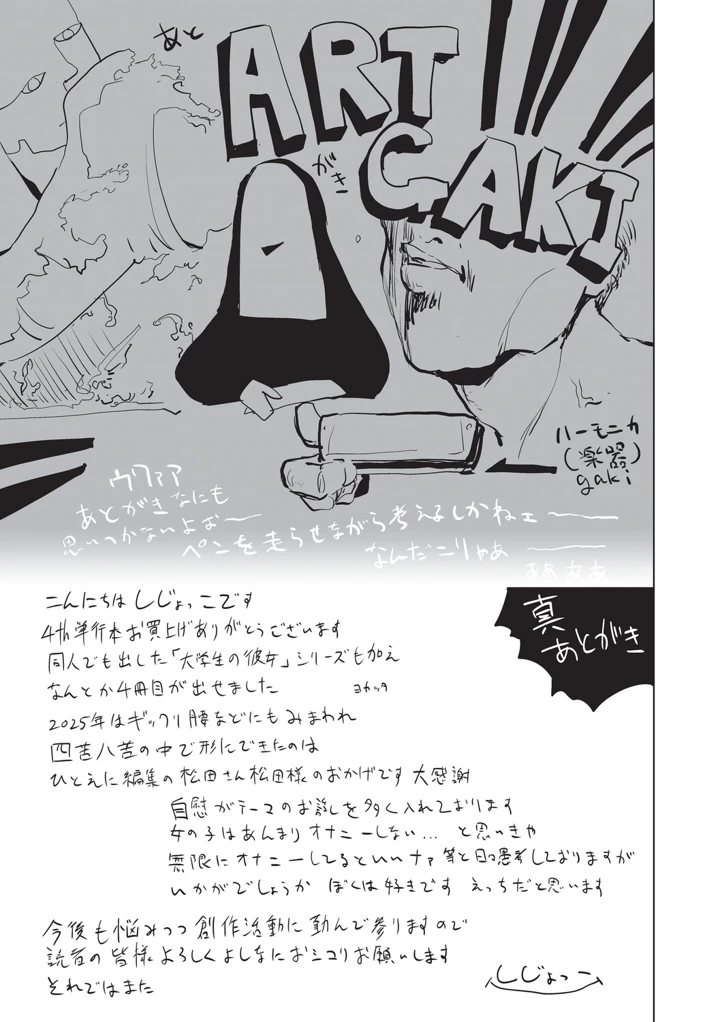 あと
ART
がき
GAKI
ハーモニカ
(楽器)
gaki
ウワァァ
あとがきなにも
思いつかないよおー
ペンを走らせながら考えるしかねェー
なんだこりゃあー
ああああ
真
あとがき
こんにちは しじょっこです
4th単行本お買上げありがとうございます
同人でも出した「大学生の彼女」シリーズも加え
なんとか4冊目が出せました
ヨカッタ
2025年はギックリ腰などにもみまわれ
四苦八苦の中で形にできたのは
ひとえに編集の松田さん松田様のおかげです 大感謝
自慰がテーマのお話しを多く入れております
女の子はあんまりオナニーしない… と思いきや
無限にオナニーしてるといいナァ 等と日々愚考しておりますが
いかがでしょうか ぼくは好きです えっちだと思います
今後も悩みつつ創作活動に勤んで参りますので
読者の皆様よろしくよしなにおシコりお願いします
それではまた
しじょっこ